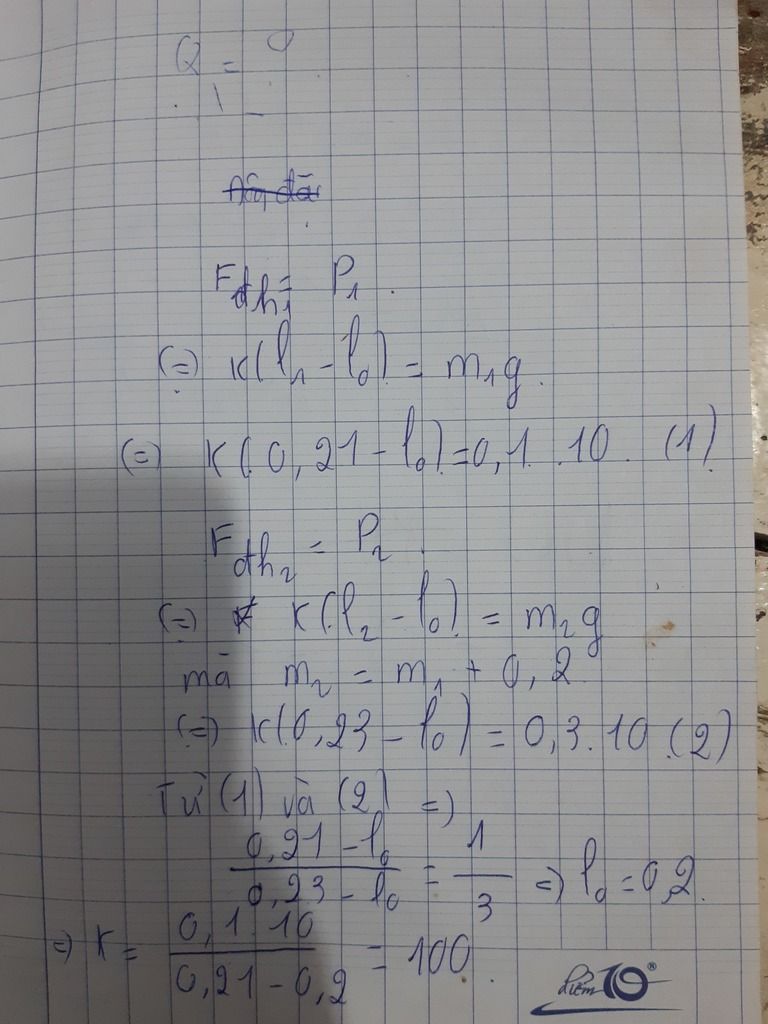 Q = 0
F đh1 = P1.
(=) K(l1 - l0) = m1g.
(=) K(0,21 - l0) = 0,1.10. (1)
F đh2 = P2.
(=) K(l2 - l0) = m2g
mà m2 = m1 + 0,2
(=) K(0,23 - l0) = 0,3.10 (2)
Từ (1) và (2) =)
0,21 - l0 / 0,23 - l0 = 1 / 3 =) l0 = 0,2.
=) K = 0,1.10 / 0,21 - 0,2 = 100.
điểm 10®